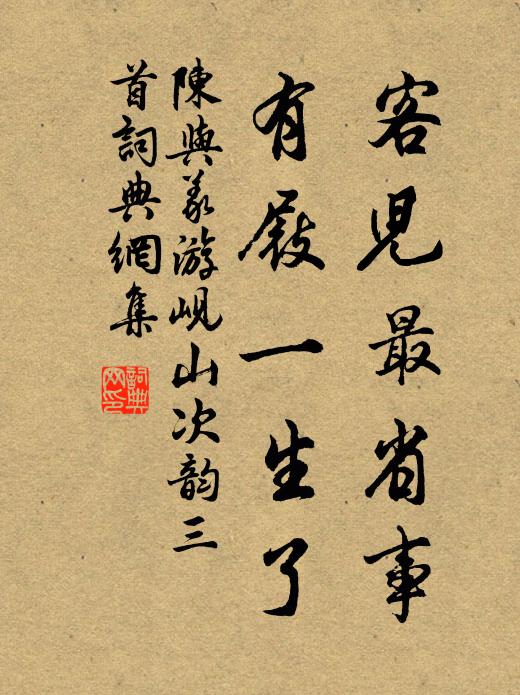 客児最省事
有屐一生了
陳與義游峴山次韵三
首詞典網集
詞典
网印